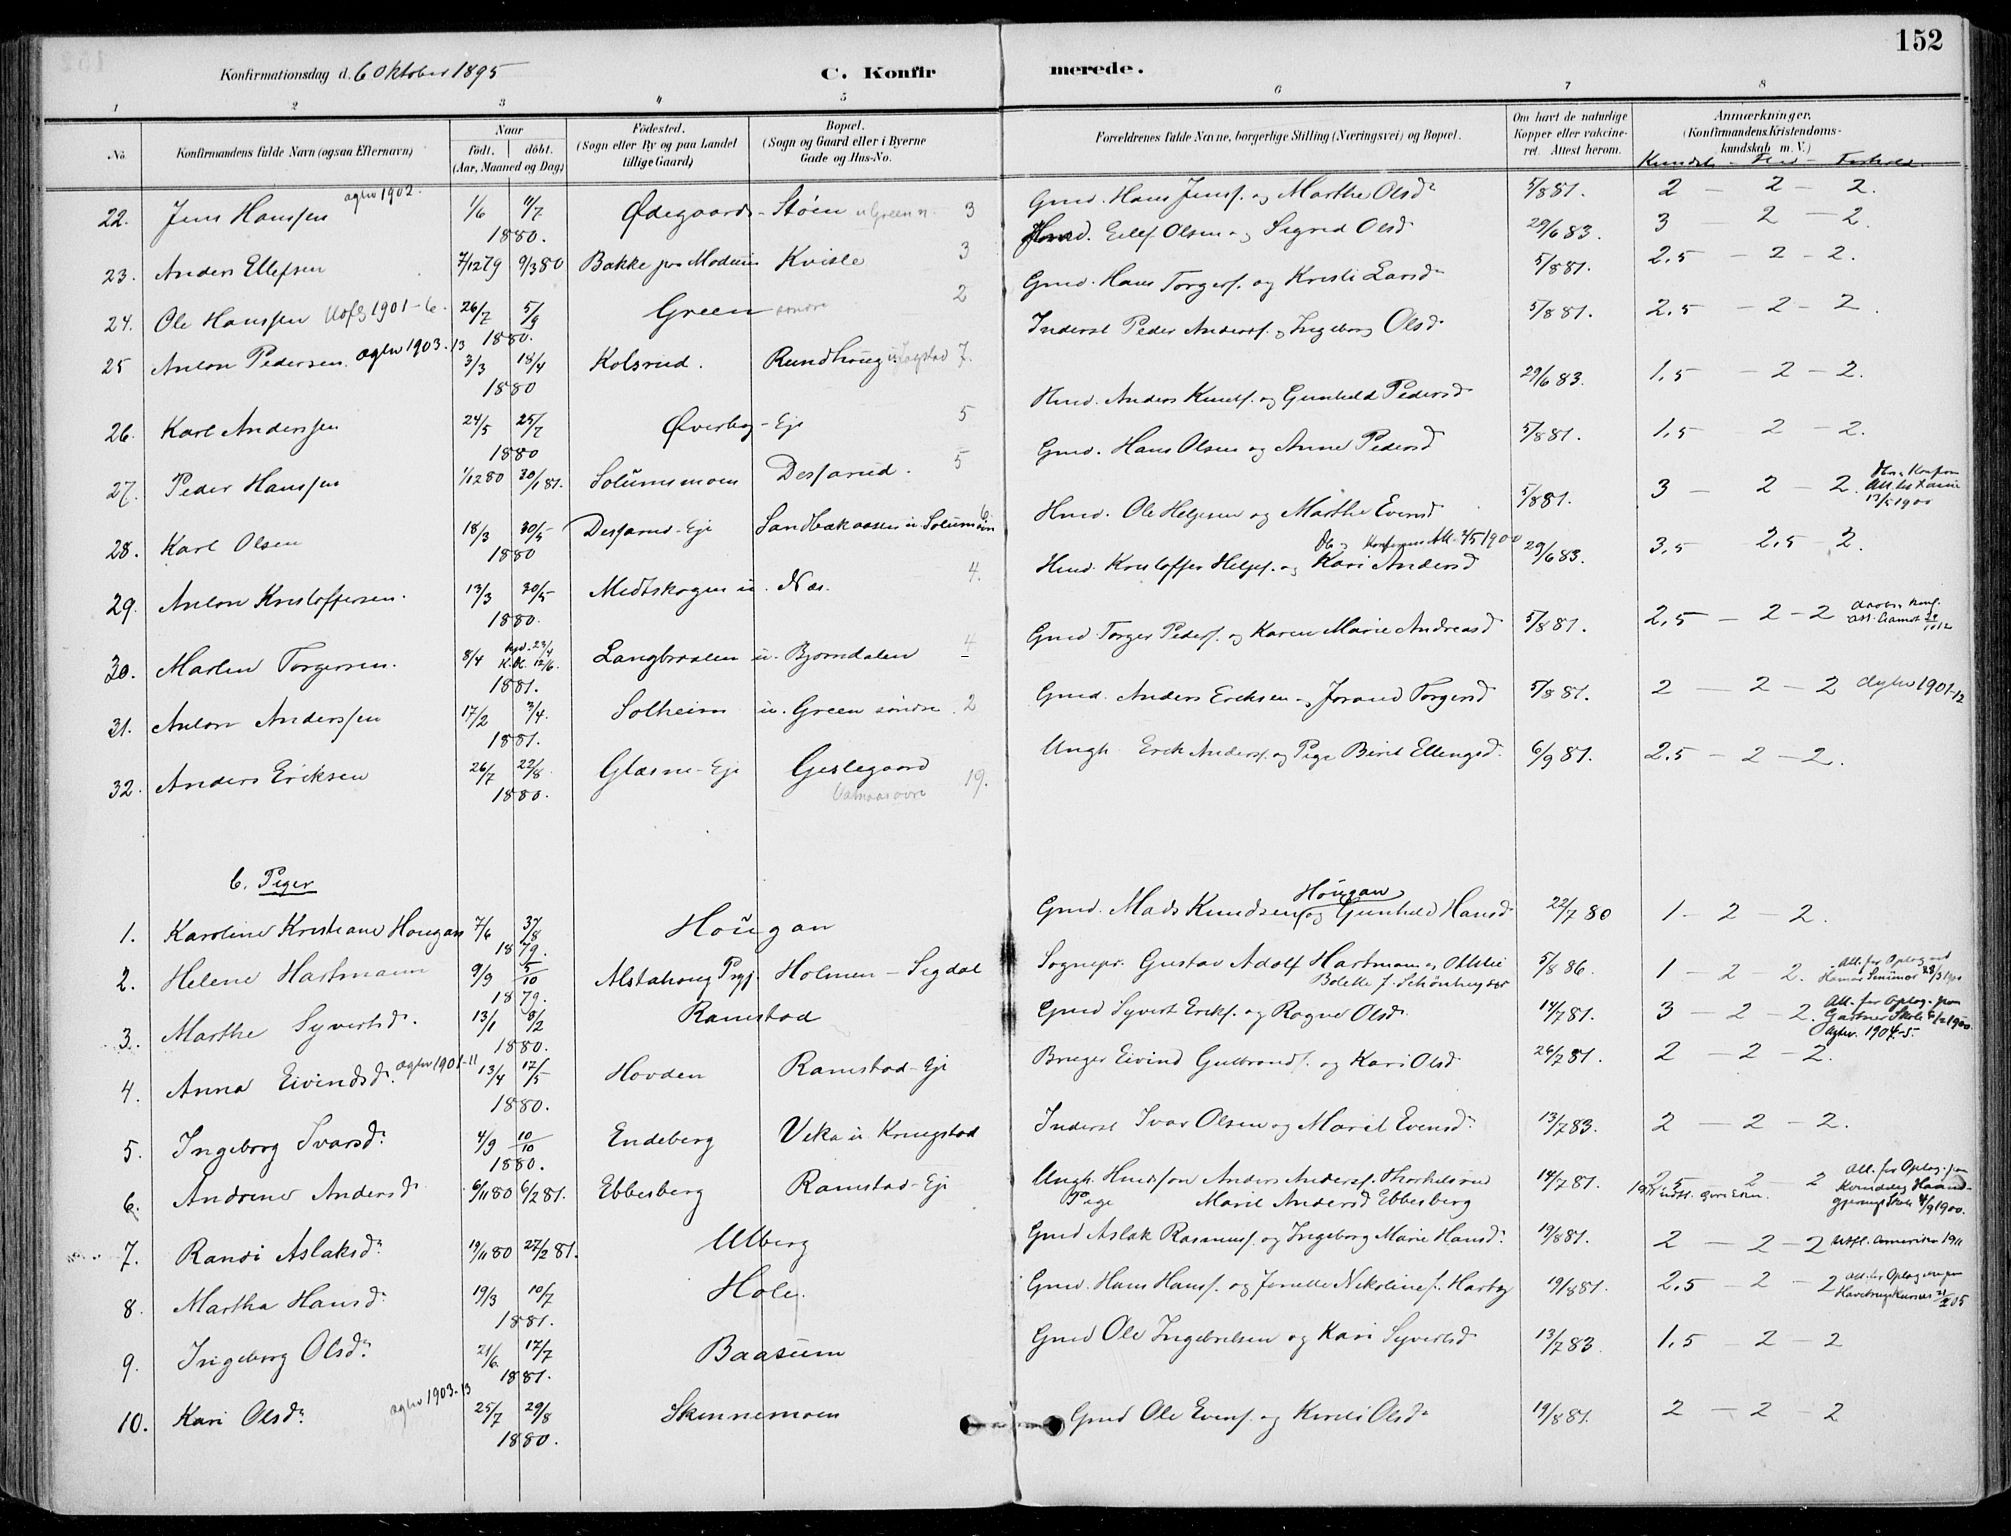 152
Konfirmationsdag d. 6 Oktober 1895
C. Konfirmerede.
1 2 3 4 5 6 7 8
No.
Konfirmandens fulde Navn (ogsaa Efternavn)
Naar
födt. döbt.
(Aar, Maaned og Dag)
Födested.
(Sogn eller By og paa Landet tillige Gaard)
Bopæl.
(Sogn og Gaard eller i Byerne Gade og Hus-No.
Forældrenes fulde Navne, borgerlige Stilling (Næringsvei) og Bopæl.
Om havt de naturlige Kopper eller vaccineret. Attest herom.
Anmærkninger.
(Konfirmandens Kristendomskundskab m. V.)
22. Jens Hanssen aghv 1902. 1/6 11/7 1880. Ødegaards- Støen 3 Gmd. Hans Jensf. og Marthe Olsd. 5/8 81. 2 – 2 – 2.
23. Anders Ellefsen 7/12 79 9/3 80 Bakke paa Modum Kvisle 3 Ellef Olsen og Sigrid Olsd. 29/6 83. 3 – 2 – 2.
24. Ole Hanssen 1901-6. 26/7 5/9 1880. Green søndre 2 Gmd. Hans Torgersf. og Kristi Larsd. 5/8 81. 2,5 – 2 – 2.
25 Anton Pedersen. aghv 1903-13 3/3 18/4 1880 Kolsrud. Rundhoug 7. Inderst Peder Andersf. og Ingeborg Olsd. 5/8 81. 2,5 – 2 – 2.
26. Karl Anderssen 24/5 25/7 1880 Øverby - Eje 5 Hmd. Anders Knudsf. og Gunhild Pedersd. 29/6 83. 1,5 – 2 – 2.
27. Peder Hanssen 1/12 80 30/1 81. Solumsmoen Desserud. 5 Gmd. Hans Olsen og Anne Pedersd. 5/8 81. 1,5 – 2 – 2.
28. Karl Olsen 18/3 30/5 1880 Desserud - Eje Sandbækaasen u. Solumsmoen 6. Hmd. Ole Helgesen og Marthe Evensd. 5/8 81. 3 – 2 – 2.
29. Anton Kristoffersen. 13/3 30/5 1880. Midtskogen u. Næs. 4. Hmd. Kristoffer Helgesf. og Kari Andersd. 29/6 83. 3,5 2,5 – 2.
30. Martin Torgersen. 8/4 23/4 12/6. 1881. Langbraaten u. Bjørndalen 4 Gmd. Torger Pedersf. og Karen Marie Andreasd. 5/8 81. 2,5 – 2 – 2
31. Anton Anderssen 17/2 3/4. 1881. Solheim u. Green søndre 2 Gmd. Anders Eriksen og Jorand Torgersd. 5/8 81. 2 – 2 – 2 aghv 1901-12
32. Anders Eriksen 26/7 22/8. 1880. Glæsne - Eje Geslegaard 19. Ungk. Erik Andersf. og Pige Birit Ellingsd. 6/9 81. 2,5 – 2 – 2.
b. Piger
1. Karoline Kristiane Hougan 7/6 3/8 1879. Hougan Gmd. Mads Knudsen Hougan og Gunhild Hansd. 22/7 80 1 – 2 – 2.
2. Helene Hartmann 9/9 5/10 1879. Alstahoug Prgj. Holmen - Sigdal Sognepr. Gustav Adolf Hartmann og Ottilie Bolette f. Schönheyder 5/8 86. 1 – 2 – 2.
3. Marthe Syvertsd. 13/1 8/2 1880. Ramstad Gmd Syvert Eriksf. og Ragne Olsd. 14/7 81. 3 – 2 – 2. Att. for Optag. paa Gartner Skole 1900. aghv. 1904-5.
4. Anna Eivindsd. aghv 1901-11 13/4 17/5 1880. Hovden Ramstad - Eje Bruger Eivind Gulbrandsf. og Kari Olsd. 26/7 81. 2 – 2 – 2.
5. Ingeborg Ivarsd. 4/9 10/10 1880. Endeberg Vika u Kringstad Inderst Ivar Olsen og Marit Evensd. 13/7 83. 2 – 2 – 2.
6. Andrine Andersd. 6/11 80 6/2 81. Ebbesberg Ramstad - Eje Ungk. Anders Andersf. Pige Marit Andersd Ebbesberg 14/7 81. 2,5 2 2 Att. for Optag. paa Kvindelig Haandgjerningsskole 4/9 1900.
7. Randi Aslaksd. 19/11 80 27/2 81. Ulberg Gmd Aslak Rasmusf. og Ingeborg Marie Hansd. 19/8 81. 2 – 2 – 2 Utfl. Amerika 1911
8. Martha Hansd. 19/3 10/7 1881. Hole. Gmd. Hans Hansf. og Jonette Nikoline f. Hartz 19/8 81. 2,5 – 2 – 2
9. Ingeborg Olsd. 21/6. 17/7 1881. Baasum Gmd Ole Ingebretsen og Kari Syvertsd. 13/7 83. 1,5 – 2 – 2
10. Kari Olsd. aghv 1903-13 25/7 29/8 1880. Skinnemoen Gmd Ole Evensf. og Kirsti Olsd. 19/8 81. 2 – 2 – 2